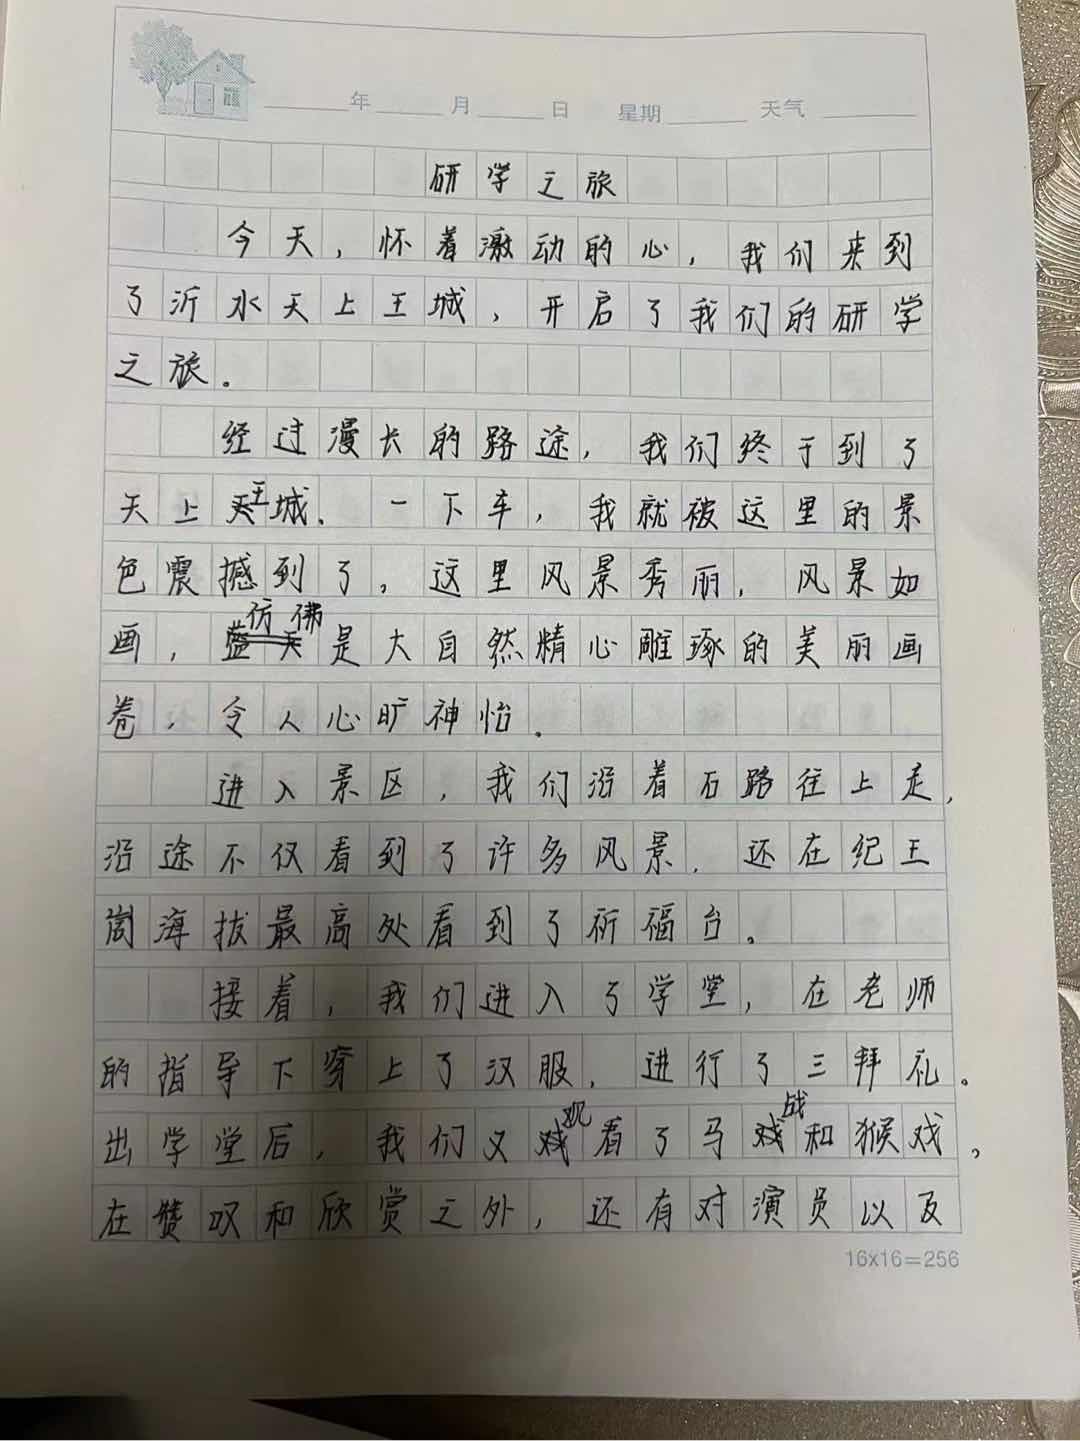 年 月 日 星期 天气
研学之旅
今天，怀着激动的心，我们来到
了沂水天上王城，开启了我们的研学
之旅。
经过漫长的路途，我们终于到了
天上王城．一下车，我就被这里的景
色震撼到了，这里风景秀丽，风景如
画，仿佛是大自然精心雕琢的美丽画
卷，令人心旷神怡。
进入景区，我们沿着石路往上走，
沿途不仅看到了许多风景．还在纪王
崮海拔最高处看到了祈福台。
接着，我们进入了学堂，在老师
的指导下穿上了汉服，进行了三拜礼。
出学堂后，我们又观看了马战和猴戏，
在赞叹和欣赏之外，还有对演员以及
16x16=256